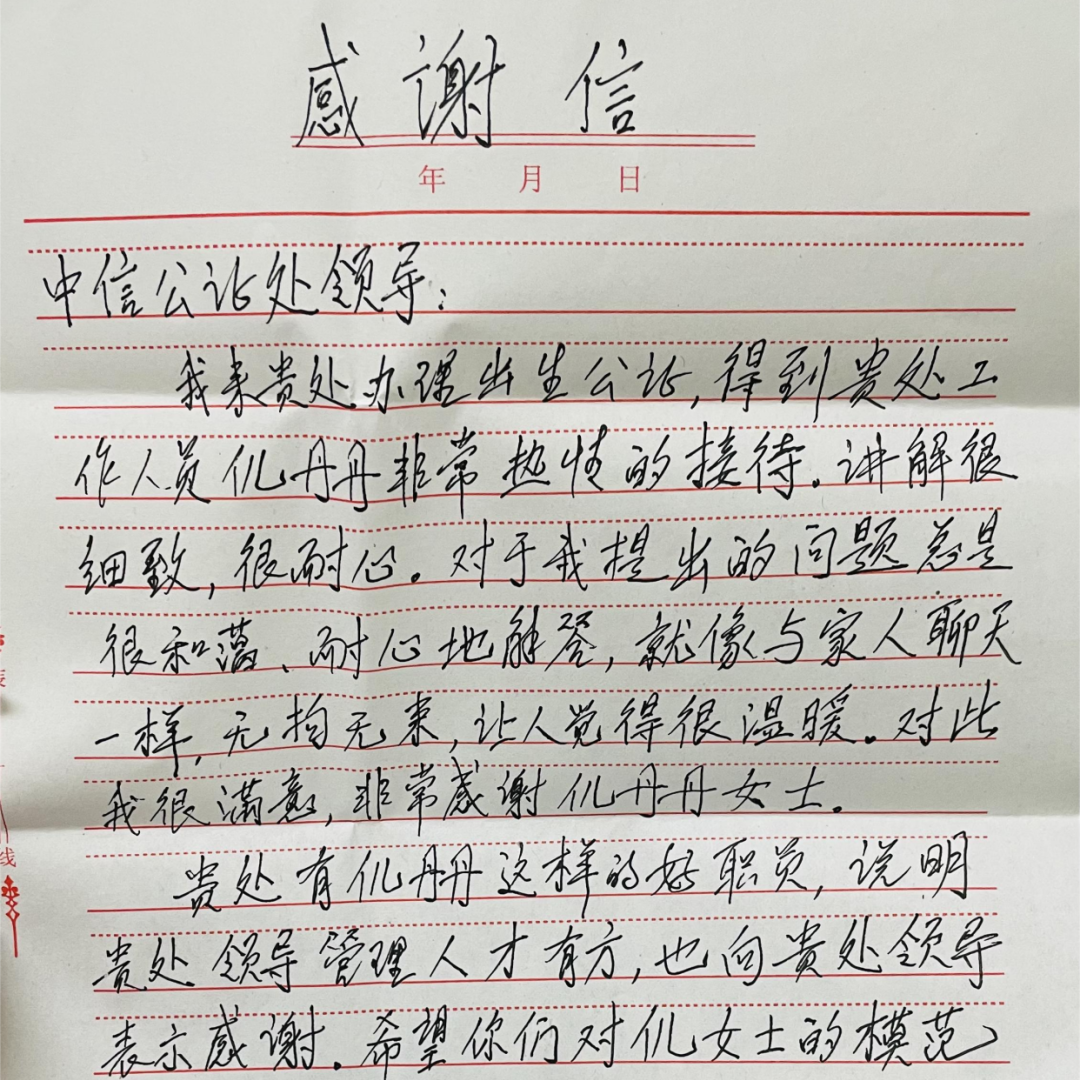 感谢信
年 月 日
中信公证处领导：
我来贵处办理出生公证，得到贵处工
作人员仉丹丹非常热情的接待。讲解很
细致，很耐心。对于我提出的问题总是
很和蔼、耐心地解答，就像与家人聊天
一样，无拘无束，让人觉得很温暖。对此
我很满意，非常感谢仉丹丹女士。
贵处有仉丹丹这样的好职员，说明
贵处领导管理人才有方，也向贵处领导
表示感谢。希望你们对仉女士的模范
线